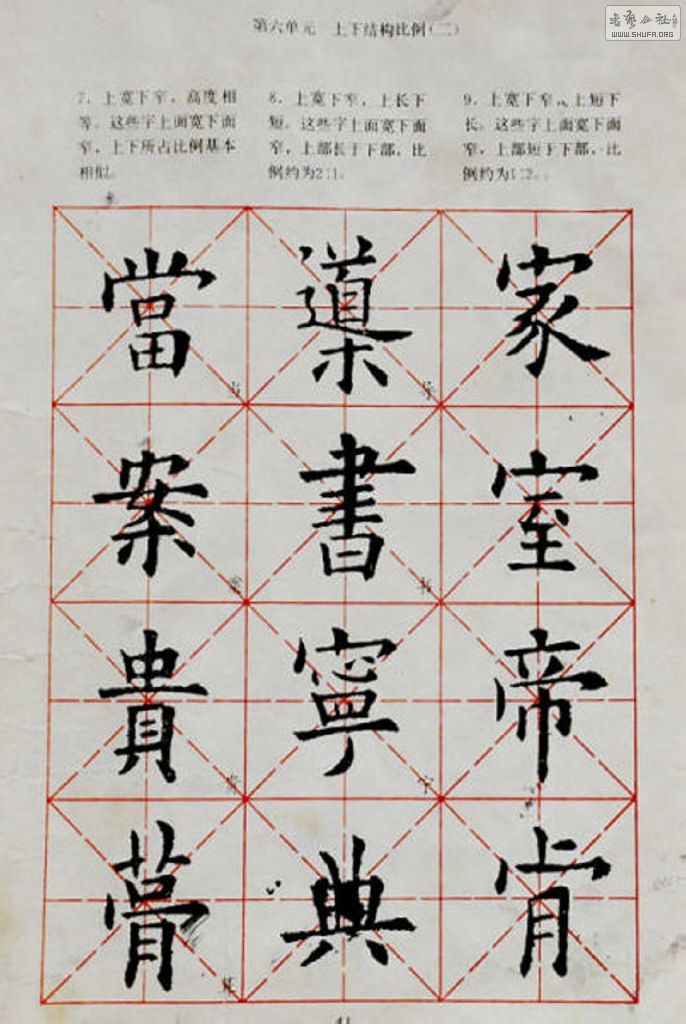 書藝公社
WWW.SHUFA.ORG
第六单元 上下结构比例(二)
7．上宽下窄，高度相
等。这些字上面宽下面
窄，上下所占比例基本
相似。
8．上宽下窄，上长下
短。这些字上面宽下面
窄，上部长于下部，比
例约为2:1。
9．上宽下窄，上短下
长。这些字上面宽下面
窄，上部短于下部，比
例约为1:2。
當 導 家
案 書 室
貴 寧 帝
典
41